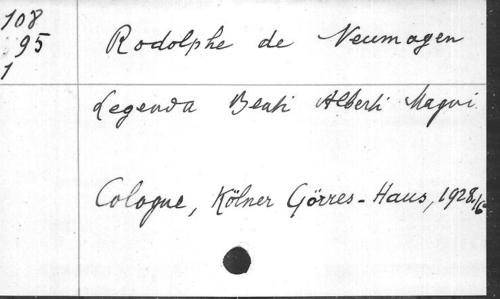 108
95
1
Rodolphe de Neumagen
Legenda Beati Alberti Magni
Cologne, Kölner Görres-Haus, 1928,